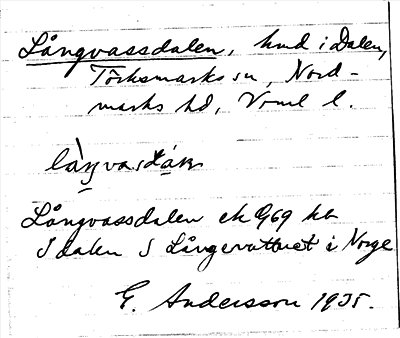 Långvassdalen, hmd i Dalen,
Töcksmarks sn, Nord-
marks hd, Vrml l.
Långvassdalen ek 969 ha
I dalen S Långevattnet i Norge
E. Andersson 1935.